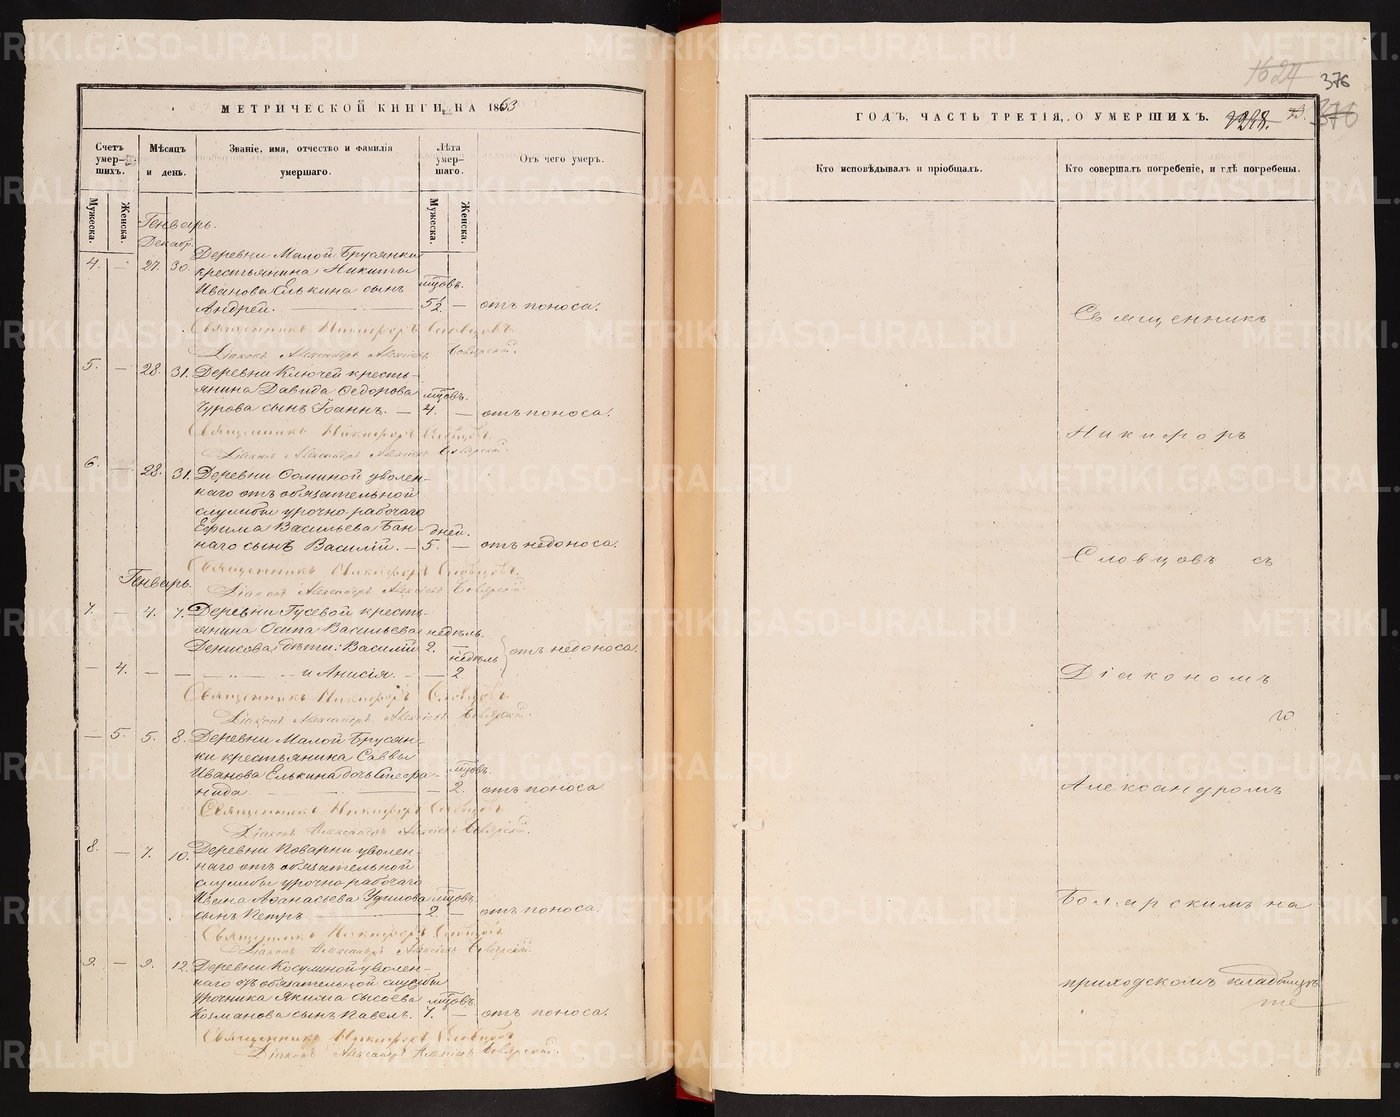 МЕТРИЧЕСКОЙ КНИГИ, НА 1863
Счетъ умер-шихъ.
Мѣсяцъ и день.
Званіе, имя, отчество и фамилія умершаго.
Лѣта умер-шаго.
Отъ чего умеръ.
Мужеска.
Женска.
Мужеска.
Женска.
Генварь.
Декабр.
Деревни Малой Брусянки
4. — 27. 30. крестьянина Никиты
Иванова Елькина сынъ мѣцовъ.
Андрей. — 5½ — отъ поноса.
Священникъ Никифоръ Словцовъ
Діаконъ Александръ Алексіевъ Боярскій.
5. — 28. 31. Деревни Ключей кресть-
янина Давида Ѳедорова мѣцовъ.
Чурова сынъ Іоаннъ. — 4. — отъ поноса.
Священникъ Никифоръ Словцовъ
Діаконъ Александръ Алексіевъ Боярскій.
6. — 28. 31. Деревни уволен-
наго отъ обязательной
службы урочно-рабочаго
Ефима Васильева Бан- дней.
наго сынъ Василій. — 5. — отъ недоноса.
Священникъ Никифоръ Словцовъ.
Генварь.
Діаконъ Александръ Алексіевъ Боярскій
7. — 4. 7. Деревни Гусевой кресть-
янина Осипа Васильева недѣль.
Денисова дѣти: Василій 2. — отъ недоноса.
недѣль
— 4. — — и Анисія. — — 2.
Священникъ Никифоръ Словцовъ
Діаконъ Александръ Алексіевъ Боярскій.
— 5. 5. 8. Деревни Малой Брусян-
ки крестьянина Саввы
Иванова Елькина дочь Стефа- мѣцовъ.
нида. — — 2. отъ поноса
Священникъ Никифоръ Словцовъ
Діаконъ Александръ Алексіевъ Боярскій.
8. — 7. 10. Деревни Поварни уволен-
наго отъ обязательной
службы урочно-рабочаго
Ивана Аѳанасьева мѣцовъ.
сынъ Петръ. — 2 — отъ поноса.
Священникъ Никифоръ Словцовъ
Діаконъ Александръ Алексіевъ Боярскій.
9. — 9. 12. Деревни Косулиной уволен-
наго отъ обязательной службы
урочника Якима Сысоева мѣцовъ.
Козманова сынъ Павелъ. 7. — отъ поноса.
Священникъ Никифоръ Словцовъ
Діаконъ Александръ Алексіевъ Боярскій.
1627
376
ГОДЪ, ЧАСТЬ ТРЕТІЯ, О УМЕРШИХЪ.
376
Кто исповѣдывалъ и пріобщалъ.
Кто совершалъ погребеніе, и гдѣ погребены.
Священникъ
Никифоръ
Словцовъ съ
Діакономъ
Александромъ
Боярскимъ на
приходскомъ кладбищѣ
METRIKI.GASO-URAL.RU